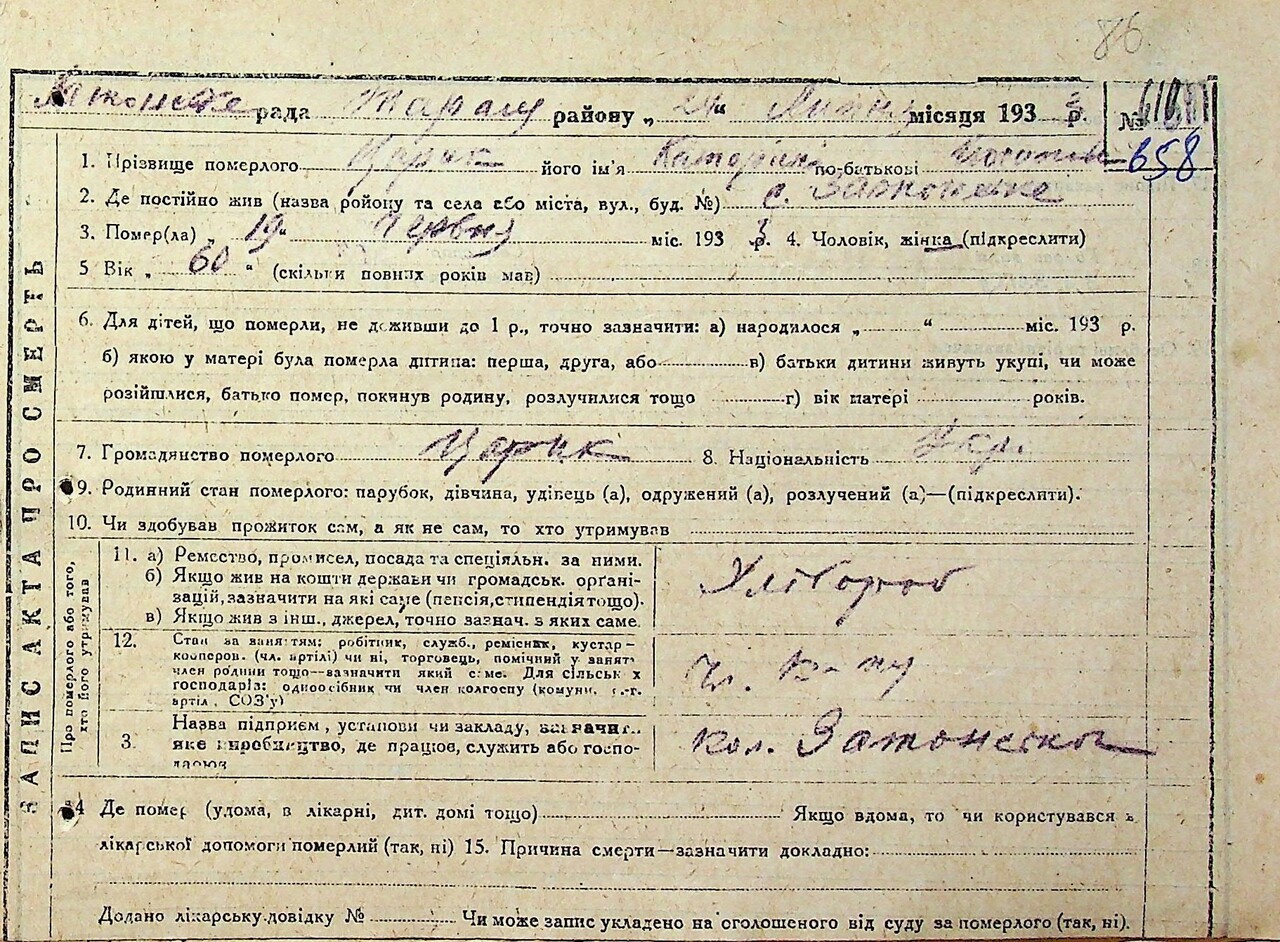 86
рада Таращ району „ 24 “ Липня місяця 193 3 р. №
658
1. Прізвище померлого Царик його ім'я Катерин по-батькові
2. Де постійно жив (назва ройону та села або міста, вул., буд. №) с. Затонське
3. Помер(ла) „ 19 “ Червня міс. 193 3 р. 4. Чоловік, жінка (підкреслити)
5 Вік „ 60 “ (скільки повних років мав)
6. Для дітей, що померли, не доживши до 1 р., точно зазначити: а) народилося „ “ міс. 193 р.
б) якою у матері була померла дптина: перша, друга, або в) батьки дитини живуть укупі, чи може
розійшлися, батько помер, покинув родину, розлучилися тощо г) вік матері років.
7. Громадянство померлого Царик 8. Національність Укр.
9. Родинний стан померлого: парубок, дівчина, удівець (а), одружений (а), розлучений (а)—(підкреслити).
10. Чи здобував прожиток сам, а як не сам, то хто утримував
ЗАПИС АКТА ПРО СМЕРТЬ
Про померлого або того,
хто його утримував
11. а) Ремество, промисел, посада та спеціяльн. за ними.
б) Якщо жив на кошти держави чи громадськ. орґані-
зацій, зазначити на які саме (пенсія, стипендія тощо).
в) Якщо жив з інш., джерел, точно зазнач. з яких саме.
Хлібороб
12. Стан за заняттям: робітник, служб., ремісник, кустар-
кооперов. (чл. артілі) чи ні, торговець, помічний у занят.
член родини тощо—зазначити який саме. Для сільськ х
господарів: одноосібник чи член колгоспу (комуни, с.-г.
артіл, СОЗ'у)
Чл. к-пу
3. Назва підприєм, установи чи закладу, зазначит..
яке виробництво, де працює, служить або госпо-
дарює
кол. Затонськ
4 Де помер (удома, в лікарні, дит. домі тощо) Якщо вдома, то чи користувався в
лікарської допомоги померлий (так, ні) 15. Причина смерти—зазначити докладно:
Додано лікарську довідку № Чи може запис укладено на оголошеного від суду за померлого (так, ні).